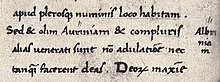 apud plerosq; numinis loco habitam.
Sed & olim Auriniam & compluris
alias venerati sunt nō adulatiōe nec
tanq̄ facerent deas. Deoꝝ maxīe
Albri
nia